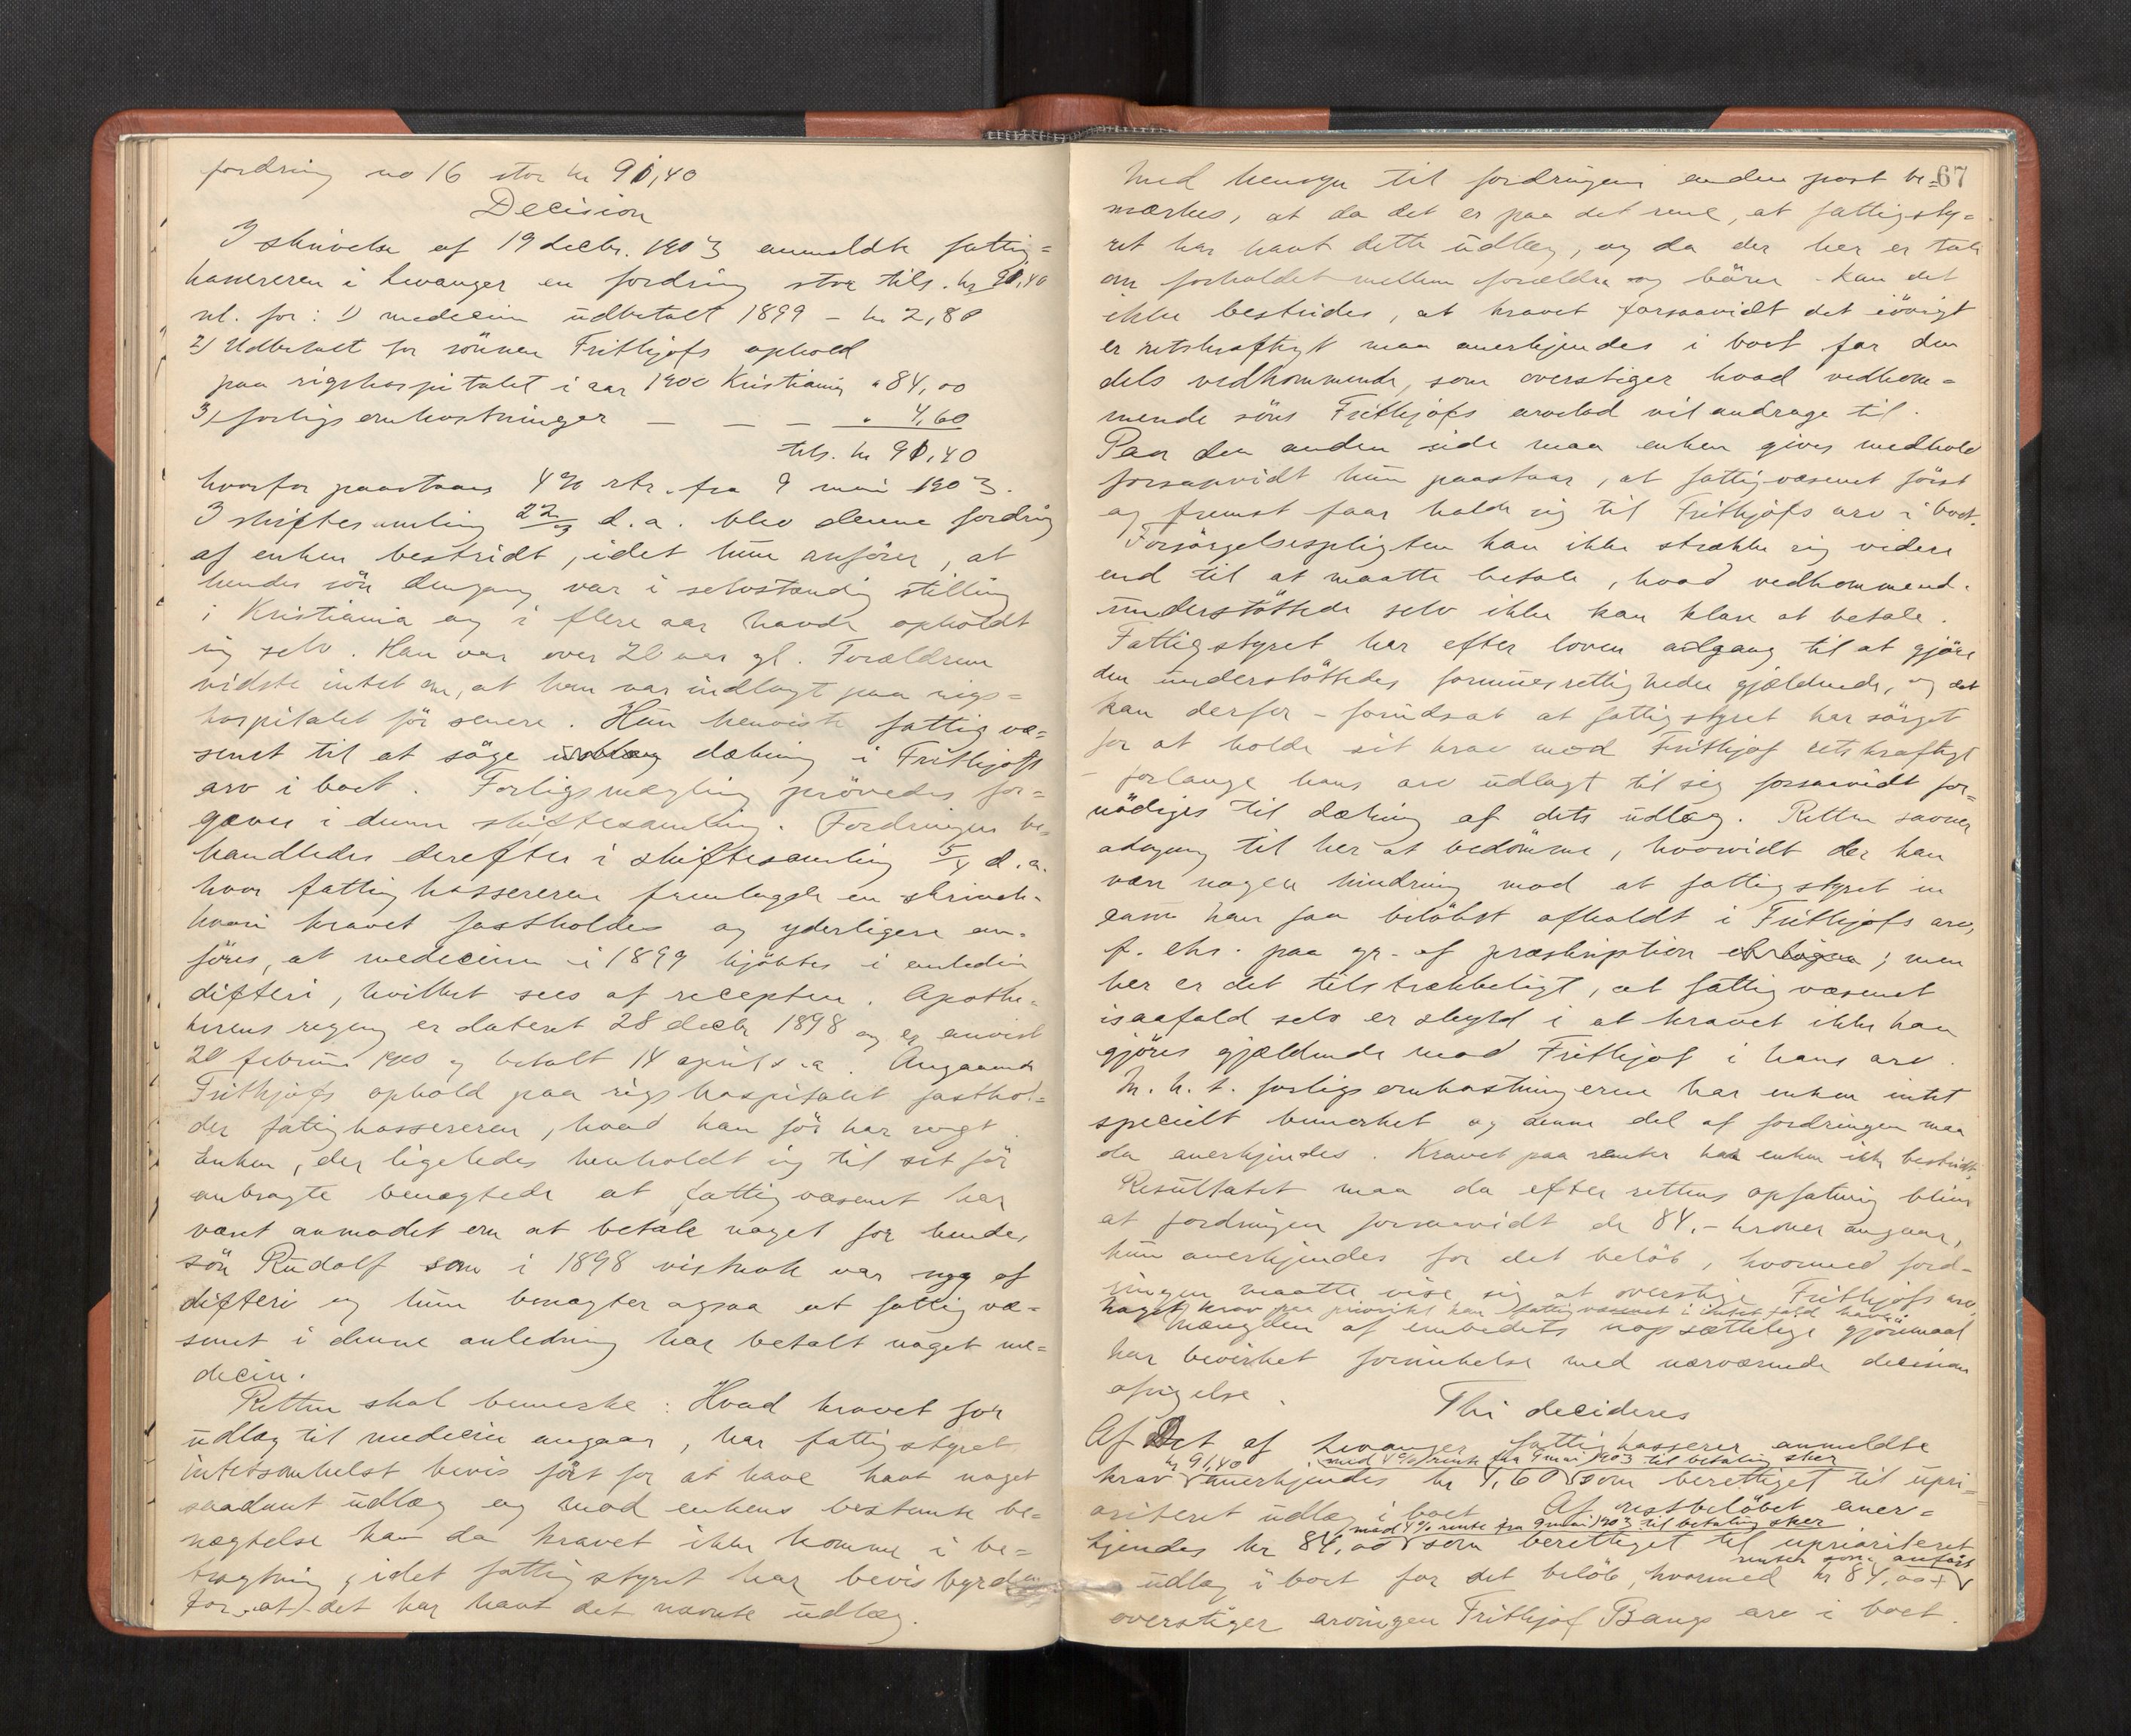 fordring no 16 stor kr 91,40
Decision
I skrivelse af 19 decbr. 1903 anmeldte fattig=
kassereren i Levanger en fordring stor tils. kr 91,40
nl. for: 1) medecin udbetalt 1899 – kr 2,80
2) Udbetalt for sönnen Frithjofs ophold
paa rigshospitalet i aar 1900 Kristiania " 84,00
3) forligsomkostninger – – – " 4,60
tils. kr 91,40
hvorfor paastaaes 4% rtr. fra 9 mai 1903.
I skiftesamling 22/3 d.a. blev denne fordring
af enken bestridt, idet hun anförer, at
hendes sön dengang var i selvstændig stilling
i Kristiania og i flere aar havde opholdt
sig selv. Han var over 20 aar gl. Forældrene
vidste intet om, at han var indlagt paa rigs=
hospitalet för senere. Hun henviste fattigvæ=
senet til at söge dækning i Frithjofs
arv i boet. Forligsmægling prövedes for=
gjæves i denne skiftesamling. Fordringen be=
handledes derefter i skiftesamling 5/4 d.a.
hvor fattigkassereren fremlagde en skrivelse
hvori kravet fastholdes og yderligere an=
föres, at medecinen i 1899 kjöbtes i anledn
difteri, hvilket sees af recepten. Apothe=
kerens regning er dateret 28 decbr 1898 og er anvist
20 februar 1900 og betalt 14 april s.a. Angaaende
Frithjofs ophold paa rigshospitalet fasthol=
der fatigkassereren, hvad han för har sagt.
Enken, der ligeledes henholdt sig til sit för
anbragte benægtede at fattigvæsenet har
været anmodet om at betale noget for hendes
sön Rudolf som i 1898 vistnok var syg af
difteri og hun benægter ogsaa at fattigvæ=
senet i denne anledning har betalt noget me=
decin.
Retten skal bemerke: Hvad kravet for
udlæg til medecin angaar, har fattigstyret
intetsomhelst bevis fört for at have havt noget
saadant udlæg og mod enkens bestemte be=
nægtelse kan da kravet ikke komme i be=
tragtning, idet fattigstyret har bevisbyrden
for, at det har havt det nævnte udlæg.
67
Med hensyn til fordringens anden post be=
mærkes, at da det er paa det rene, at fattigsty=
ret har havt dette udlæg, og da der her er tale
om forholdet mellem forældre og börn – kan det
ikke bestrides, at kravet forsaavidt det iövrigt
er retskraftigt maa anerkjendes i boet for den
dels vedkommende, som overstiger hvad vedkom=
mende söns Frithjofs arvelod vil andrage til.
Paa den anden side maa enken gives medhold
forsaavidt hun paastaar, at fattigvæsenet först
og fremst faar holde sig til Frithjofs arv i boet.
Forsörgelsespligten kan ikke strække sig videre
end til at maatte betale, hvad vedkommende
understöttede selv ikke kan klare at betale.
Fattigstyret har efter loven adgang til at gjöre
den understöttedes formuesrettigheder gjældende, og det
kan derfor – forudsat at fattigstyret har sörget
for at holde sit krav mod Frithjof retskraftigt
– forlange hans arv udlagt til sig forsaavidt for=
nödiges til dækning af dets udlæg. Retten savner
adgang til her at bedömme, hvorvidt der kan
være nogen hindring mod at fattigstyret in
casu kan faa belöbet afholdt i Frithjofs arv,
f. eks. paa gr. af præskription; men
her er det tilstrækkeligt, at fattigvæsenet
isaafald selv er skyld i at kravet ikke kan
gjöres gjældende mod Frithjof i hans arv.
M. h. t. forligsomkostningerne har enken intet
specielt bemerket og denne del af fordringen maa
da anerkjendes. Kravet paa renter har enken ikke bestridt.
Resultatet maa da efter rettens opfatning blive
at fordringen forsaavidt de 84.– kroner angaar,
kun anerkjendes for det belöb, hvormed ford=
ringen maatte vise sig at overstige Frithjofs arv.
Noget krav paa prioritet kan fattigvæsenet i intet fald have.
Mængden af embedets uopsættelige gjöremaal
har bevirket forsinkelse med nærværende decisions
afsigelse.
Thi decideres
Af Det af Levanger fattigkasserer anmeldte
kr 91,40 med 4% rente fra 9 mai 1903 til betaling sker
krav anerkjendes kr 4,60 som berettiget til upri=
oriteret udlæg i boet. Af restbelöbet aner=
med 4% rente fra 9 mai 1903 til betaling sker
kjendes kr 84,00 som berettiget til uprioriteret
renter som anfört
udlæg i boet for det belöb, hvormed kr 84,00 +
overstiger arvingen Frithjof Bangs arv i boet.